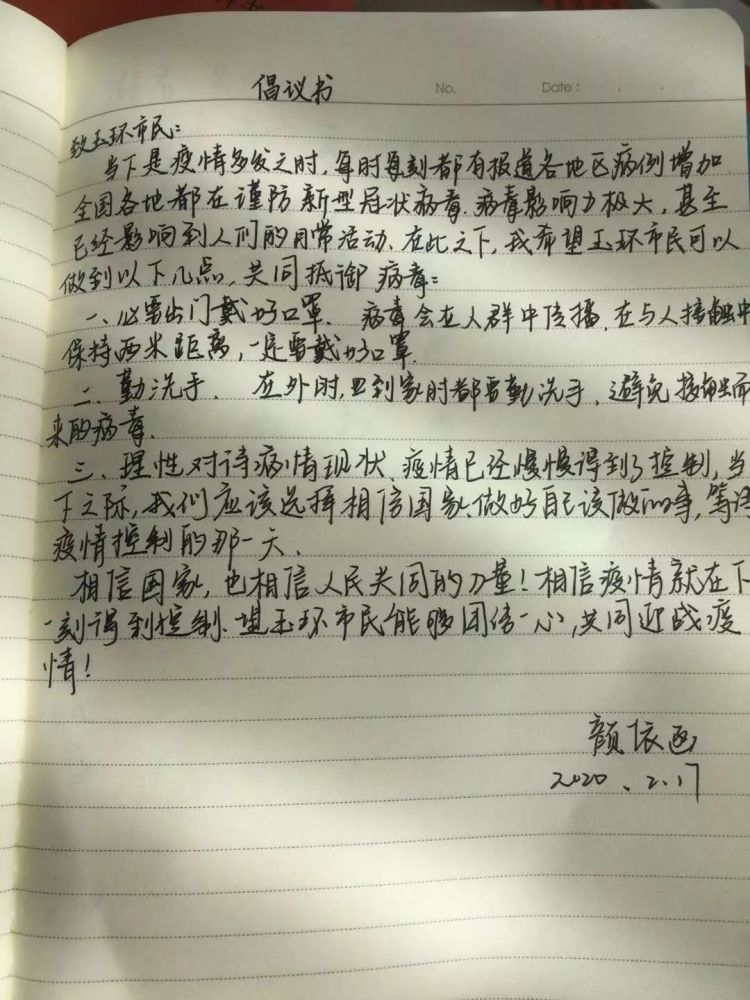 倡议书
No.
Date:
致玉环市民:
当下是疫情多发之时,每时每刻都有报道各地区病例增加
全国各地都在谨防新型冠状病毒.病毒影响力极大,甚至
已经影响到人们的日常活动.在此之下,我希望玉环市民可以
做到以下几点,共同抵御病毒:
一、必需出门戴好口罩. 病毒会在人群中传播,在与人接触中
保持两米距离,一定要戴好口罩.
二、勤洗手. 在外时,回到家时都要勤洗手,避免接触而
来的病毒.
三、理性对待病情现状.疫情已经慢慢得到了控制,当
下之际,我们应该选择相信国家.做好自己该做的事,等待
疫情控制的那一天.
相信国家,也相信人民共同的力量!相信疫情就在下
一刻得到控制.望玉环市民能够团结一心,共同迎战疫
情!
颜依函
2020.2.17